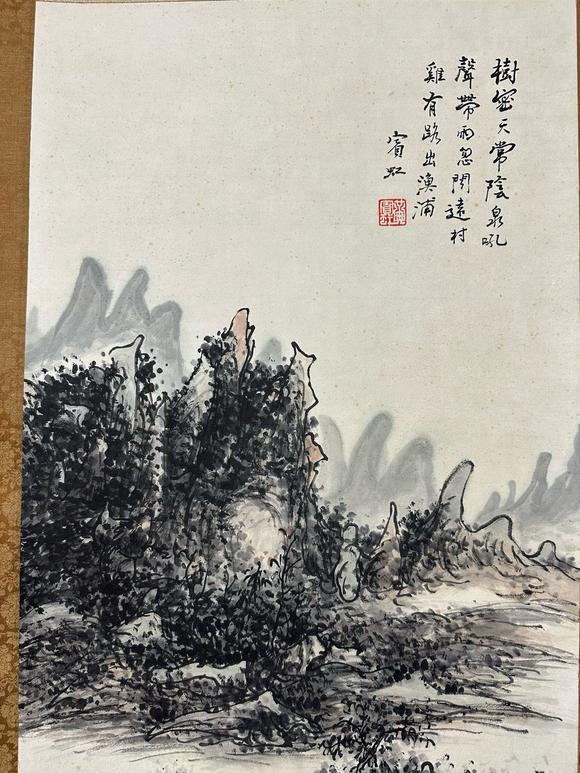 樹密天常陰泉吼
聲帶雨忽聞遠村
雞有路出漁浦
賓虹